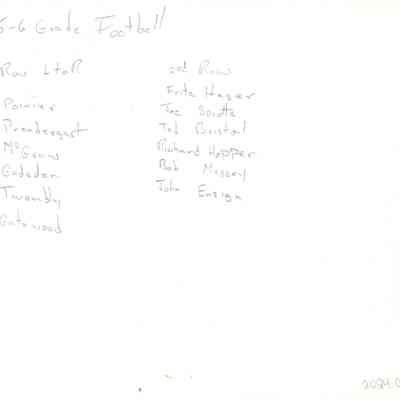 5-6 Grade Football
Row L to R
Poirier
Prendergast
McGraw
Gadsden
Twombly
Gatewood
2nd Row
Fritz Hager
Ted Bristol
Richard Hopper
Bob Massey
John Ensign